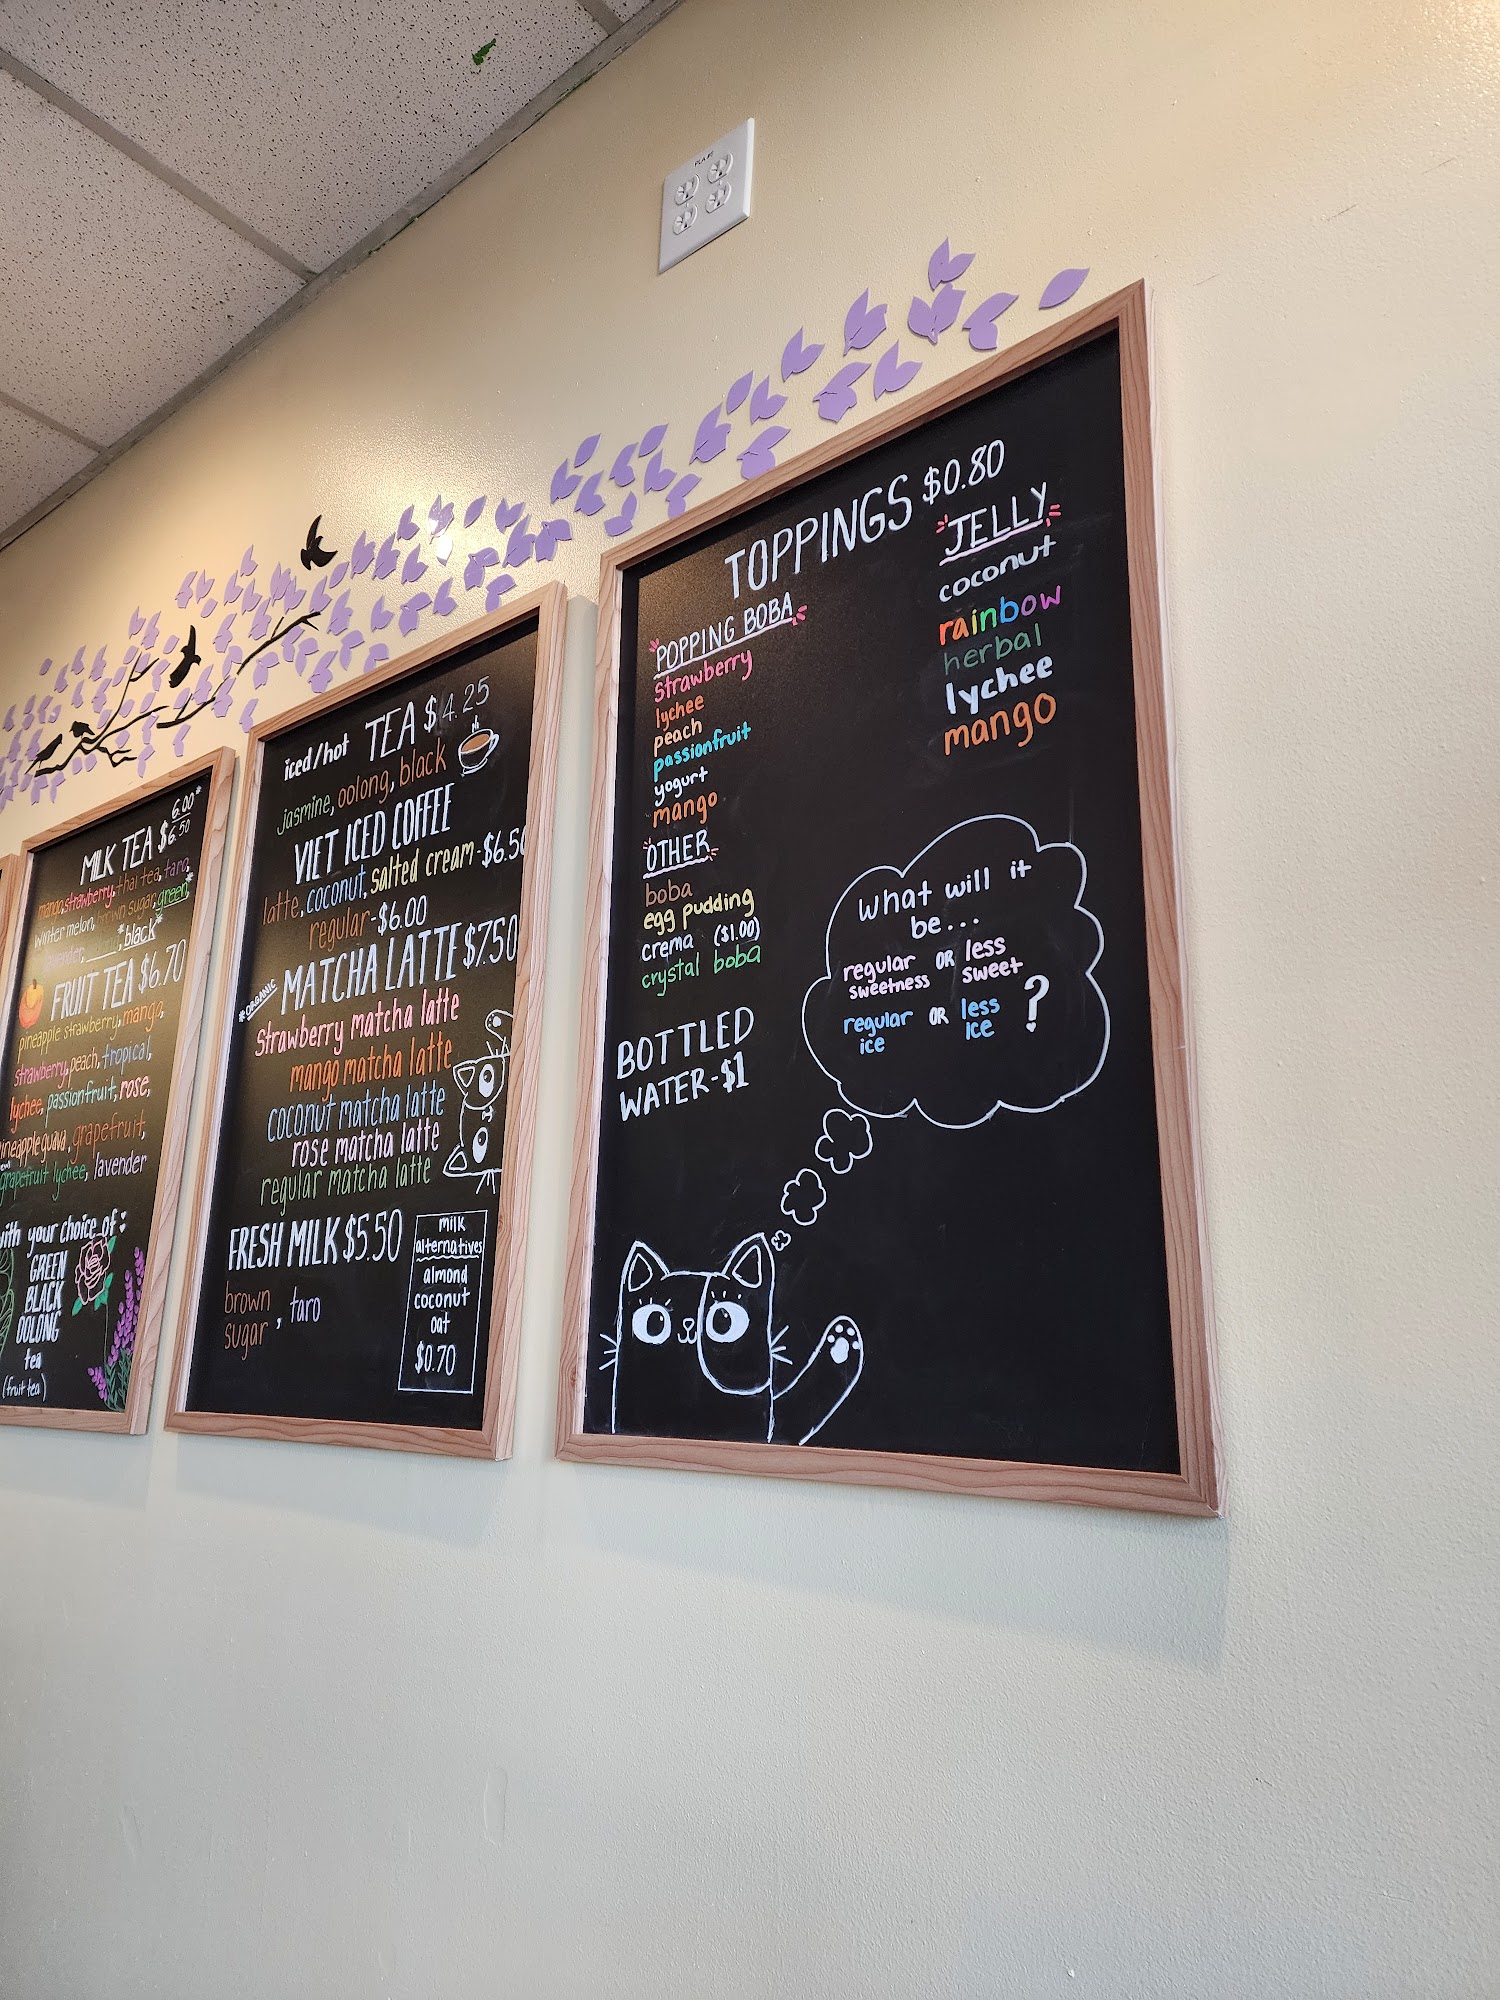 MILK TEA $ 6.00*
6.50
mango, strawberry, thai tea, taro,
winter melon, brown sugar, green*
*black*
FRUIT TEA $6.70
pineapple strawberry, mango,
strawberry, peach, tropical,
lychee, passionfruit, rose,
pineapple guava, grapefruit,
grapefruit lychee, lavender
with your choice of:
GREEN
BLACK
OOLONG
tea
(fruit tea)
iced/hot TEA $4.25
jasmine, oolong, black
VIET ICED COFFEE
latte, coconut, salted cream-$6.50
regular-$6.00
*ORGANIC MATCHA LATTE $7.50
strawberry matcha latte
mango matcha latte
coconut matcha latte
rose matcha latte
regular matcha latte
FRESH MILK $5.50
brown sugar, taro
milk
alternatives
almond
coconut
oat
$0.70
TOPPINGS $0.80
POPPING BOBA
strawberry
lychee
peach
passionfruit
yogurt
mango
OTHER
boba
egg pudding
crema ($1.00)
crystal boba
JELLY
coconut
rainbow
herbal
lychee
mango
BOTTLED
WATER-$1
What will it
be...
regular sweetness OR less sweet
regular ice OR less ice ?